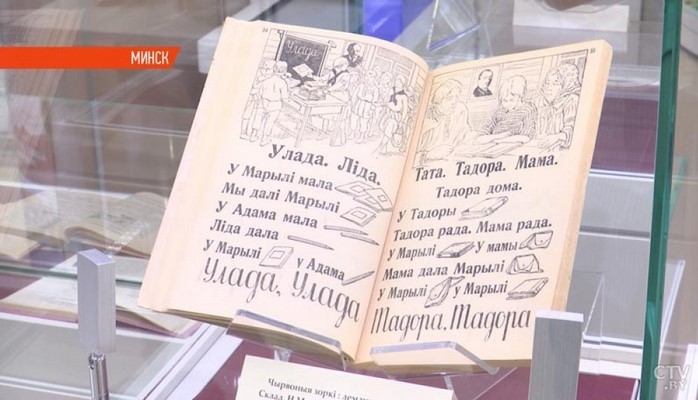 МИНСК
Улада
Улада. Ліда.
У Марылі мала
Мы далі Марылі
У Адама мала
Ліда дала
У Марылі у Адама
Улада, Улада
Тата. Тадора. Мама.
Тадора дома.
У Тадоры
Тадора рада. Мама рада.
У Марылі У мамы
Мама дала Марылі
У Марылі У Марылі
Тадора. Тадора
Чырвоныя зоркі :
Склад.
CTV
.BY